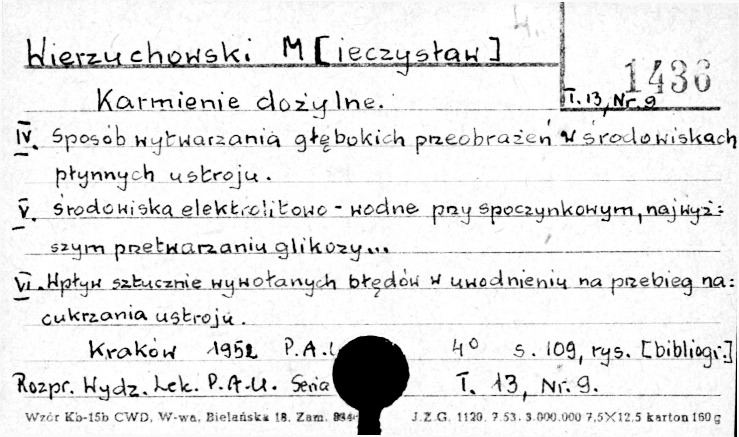 4.
Wierzuchowski M[ieczysław]
1436
Karmienie dożylne.
T. 13, Nr. 9
IV. Sposób wytwarzania głębokich przeobrażeń w środowiskach
płynnych ustroju.
V. Środowiska elektrolitowo-wodne przy spoczynkowym, najwyż:
szym przetwarzaniu glikozy...
VI. Wpływ sztucznie wywołanych błędów w uwodnieniu na przebieg na:
cukrzania ustroju.
Kraków 1952 P.A.U. 4° s. 109, rys. [bibliogr.]
Rozpr. Wydz. Lek. P.A.U. Seria T. 13, Nr. 9.
Wzór Kb-15b CWD, W-wa, Bielańska 18. Zam. J.Z.G. 1120. 7.53. 3.000.000 7,5×12,5 karton 160 g